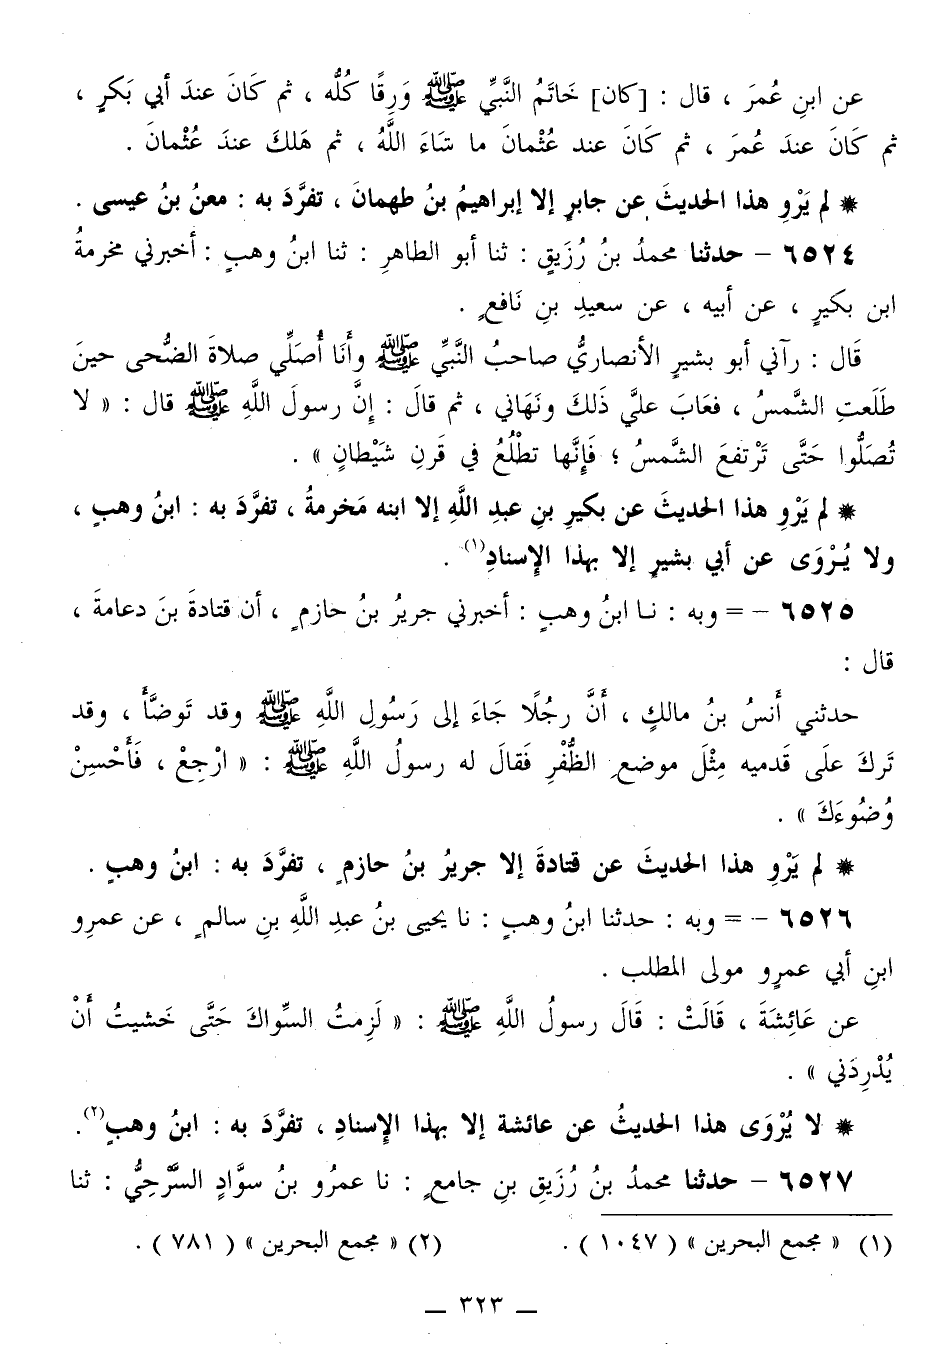 عن ابنِ عُمرَ ، قال : [كان] خَاتَمُ النَّبيِّ ﷺ وَرِقًا كُلُّه ، ثم كَانَ عندَ أبي بَكرٍ ،
ثم كَانَ عندَ عُمرَ ، ثم كَانَ عند عُثْمانَ ما شَاءَ اللَّهُ ، ثم هَلكَ عندَ عُثْمانَ .
* لم يَرْوِ هذا الحديثَ عن جابرٍ إلا إبراهيمُ بنُ طهمانَ ، تفرَّدَ به : معنُ بنُ عيسى .
٦٥٢٤ – حدثنا محمدُ بنُ رُزَيقٍ : ثنا أبو الطاهرِ : ثنا ابنُ وهبٍ : أخبرني مخرمةُ
ابن بكيرٍ ، عن أبيه ، عن سعيدِ بنِ نَافعٍ .
قَال : رآني أبو بشيرٍ الأنصاريُّ صاحبُ النَّبيِّ ﷺ وأَنَا أُصَلِّي صلاةَ الضُّحى حينَ
طَلَعتِ الشَّمسُ ، فعَابَ عليَّ ذَلكَ ونَهَاني ، ثم قالَ : إنَّ رسولَ اللَّهِ ﷺ قال : « لا
تُصَلُّوا حَتَّى تَرْتفعَ الشَّمسُ ؛ فَإِنَّها تطْلُعُ في قَرنِ شَيْطانٍ » .
* لم يَرْوِ هذا الحديثَ عن بكيرِ بنِ عبدِ اللَّهِ إلا ابنه مَخرمةُ ، تفرَّدَ به : ابنُ وهبٍ ،
ولا يُـرْوَى عن أبي بشيرٍ إلا بهذا الإسنادِ(١) .
٦٥٢٥ – = وبه : نـا ابنُ وهبٍ : أخبرني جريرُ بنُ حازمٍ ، أن قتادةَ بنَ دعامةَ ،
قال :
حدثني أَنسُ بنُ مالكٍ ، أَنَّ رجُلًا جَاءَ إلى رَسُولِ اللَّهِ ﷺ وقد تَوضَّأَ ، وقد
تَركَ علَى قَدميه مِثْلَ موضعِ الظُّفْرِ فَقالَ له رسولُ اللَّهِ ﷺ : « ارْجِعْ ، فَأَحْسِنْ
وُضُوءَكَ » .
* لم يَرْوِ هذا الحديثَ عن قتادةَ إلا جريرُ بنُ حازمٍ ، تفرَّدَ به : ابنُ وهبٍ .
٦٥٢٦ – = وبه : حدثنا ابنُ وهبٍ : نا يحيى بنُ عبدِ اللَّهِ بنِ سالمٍ ، عن عمرِو
ابنِ أبي عمرٍو مولى المطلب .
عن عَائِشةَ ، قَالَتْ : قَالَ رسولُ اللَّهِ ﷺ : « لَزِمتُ السِّواكَ حَتَّى خَشيتُ أَنْ
يُدْرِدَني » .
* لا يُرْوَى هذا الحديثُ عن عائشة إلا بهذا الإسنادِ ، تفرَّدَ به : ابنُ وهبٍ(٢).
٦٥٢٧ – حدثنا محمدُ بنُ رُزَيقِ بنِ جامعٍ : نا عمرُو بنُ سوَّادٍ السَّرْحِيُّ : ثنا
(١) « مجمع البحرين » ( ١٠٤٧ ) . (٢) « مجمع البحرين » ( ٧٨١ ) .
– ٣٢٣ –